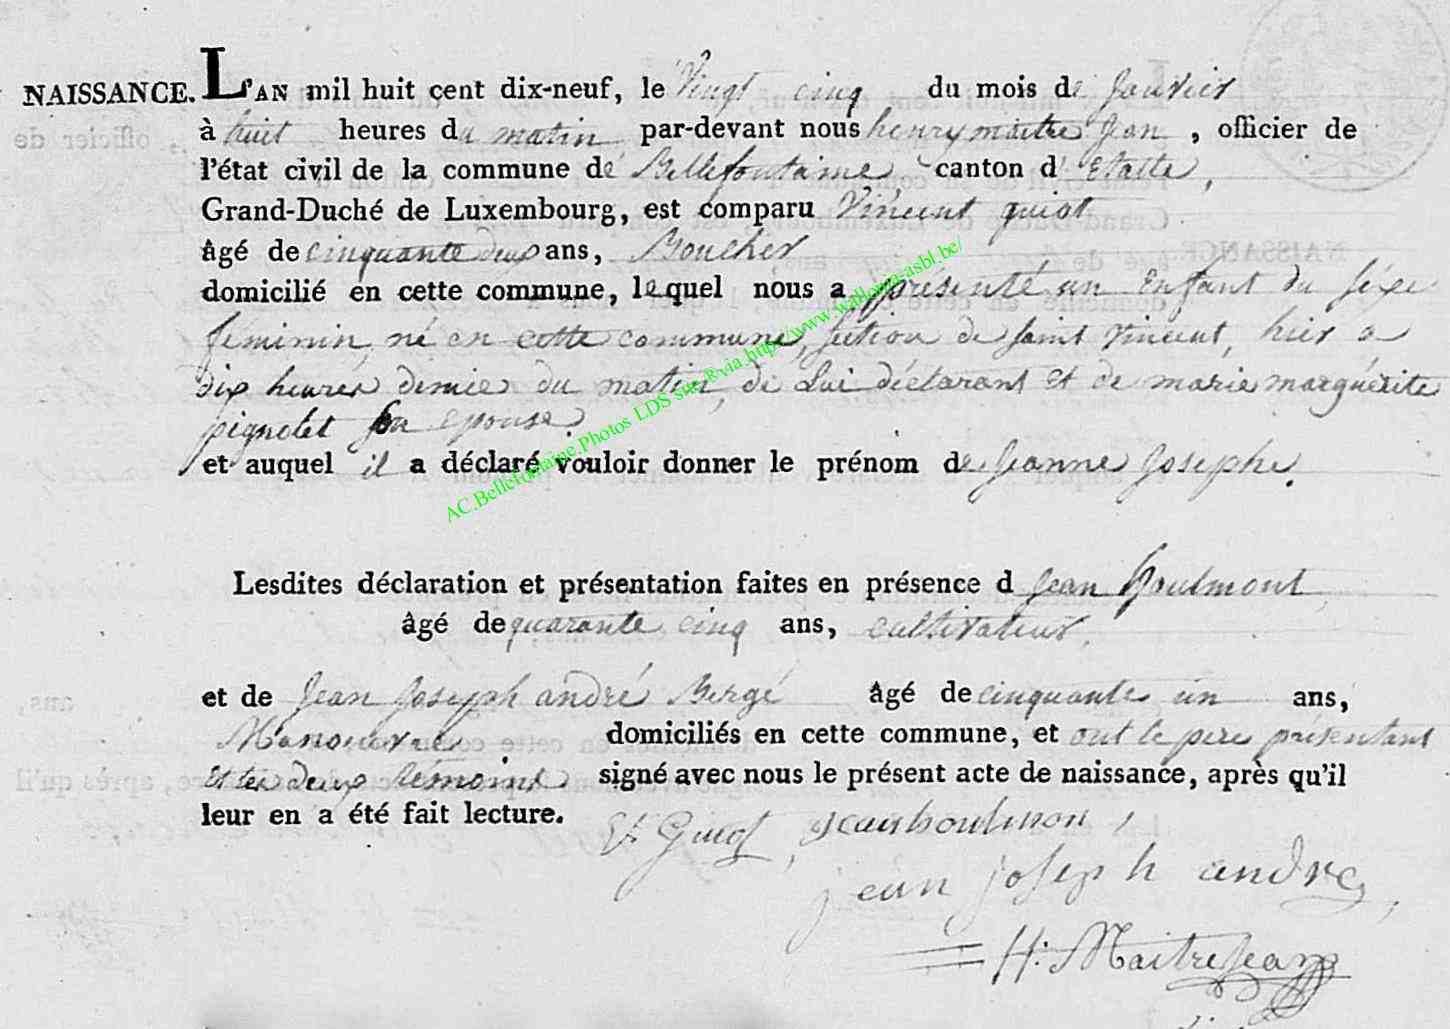 NAISSANCE. L'AN mil huit cent dix-neuf, le Vingt cinq du mois de Janvier
à huit heures du matin par-devant nous henry maitre Jean, officier de
l'état civil de la commune de Bellefontaine canton d'Etalle,
Grand-Duché de Luxembourg, est comparu Vincent guiot
âgé de cinquante deux ans, Boucher
domicilié en cette commune, lequel nous a présenté un Enfant du sexe
feminin, né en cette commune, section de saint vincent, hier a
dix heures demie du matin, de Lui déclarant et de marie marguérite
pignolet son epouse.
et auquel il a déclaré vouloir donner le prénom de Jeanne Josephe.
AC.Bellefontaine.Photos LDS sur & via http://www.wallonia-asbl.be/
Lesdites déclaration et présentation faites en présence d Jean Houlmont
âgé de quarante cinq ans, cultivateur,
et de Jean Joseph andré Bergé âgé de cinquante un ans,
Manouvre domiciliés en cette commune, et ont le pere présentant
et les deux témoins signé avec nous le présent acte de naissance, après qu'il
leur en a été fait lecture.
Guiot, jean houlmon,
jean joseph andre,
H. MaitreJean